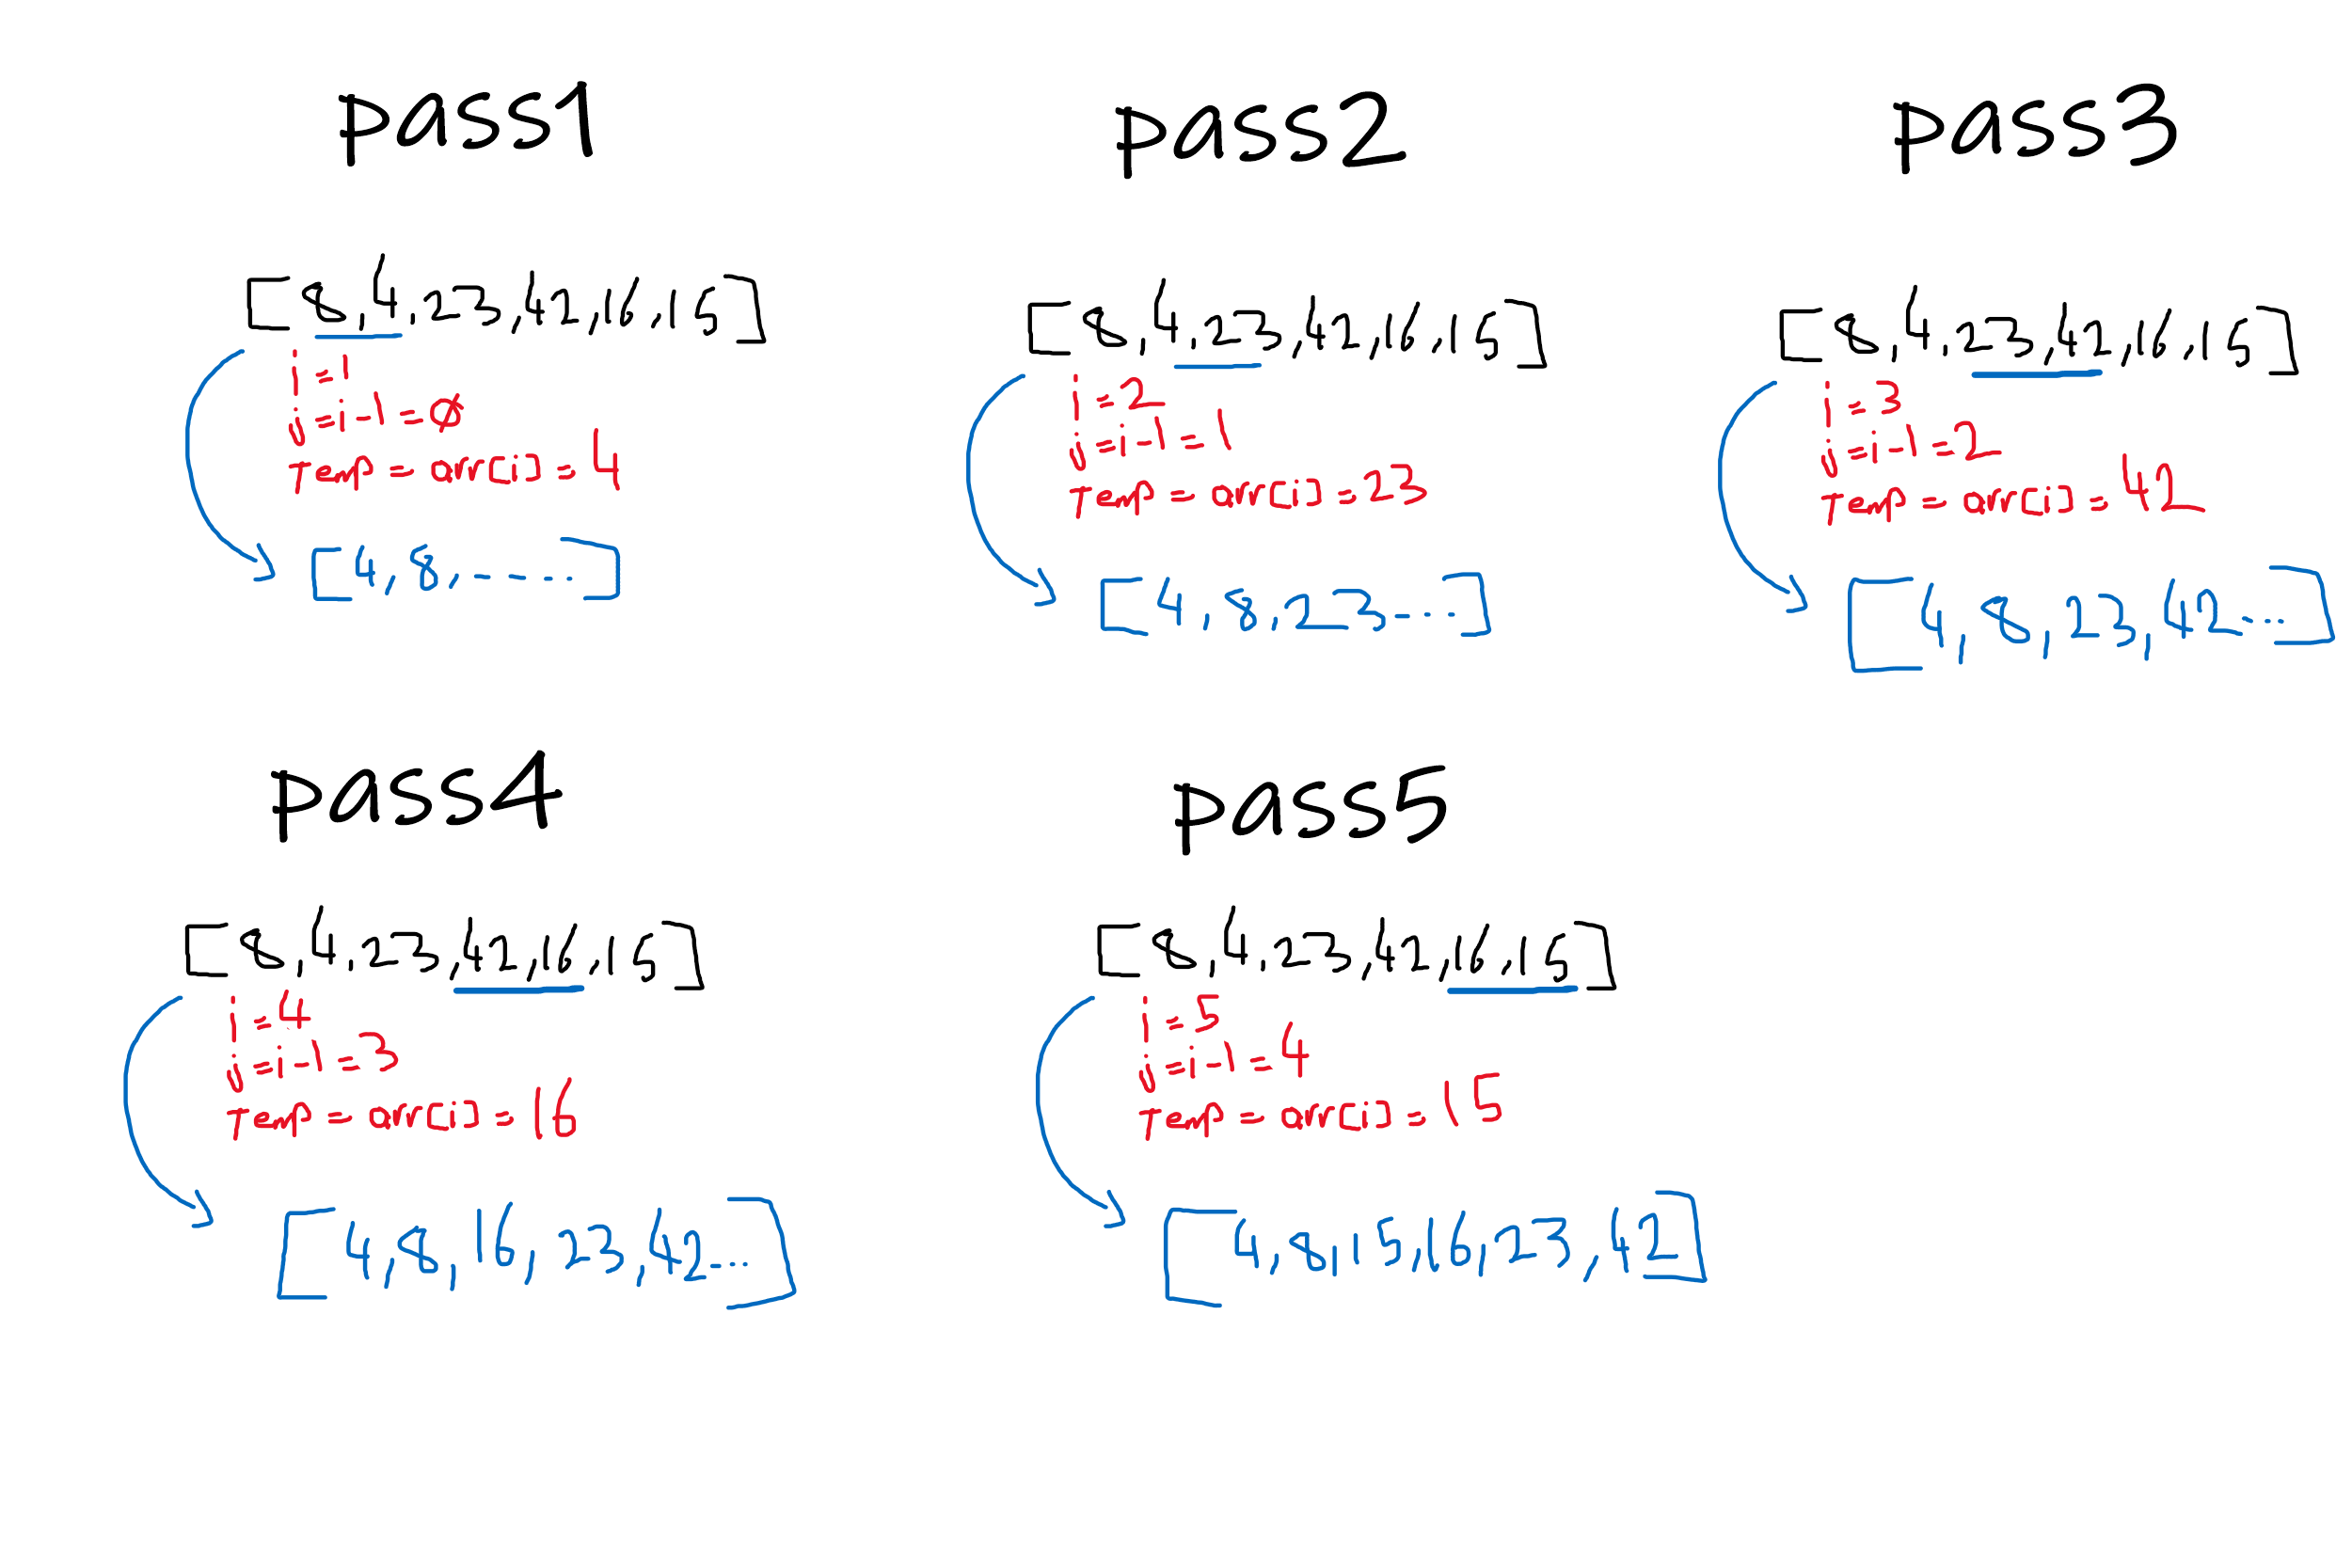 pass1
[8,4,23,42,16,15]
i=1
j=i-1=0
temp=arr[i]=4
[4,8,-----]
pass2
[8,4,23,42,16,15]
i=2
j=i-1=1
temp=arr[i]=23
[4,8,23---]
pass3
[8,4,23,42,16,15]
i=3
j=i-1=2
temp=arr[i]=42
[4,8,23,42...]
pass4
[8,4,23,42,16,15]
i=4
j=i-1=3
temp=arr[i]=16
[4,8,16,23,42...]
pass5
[8,4,23,42,16,15]
i=5
j=i-1=4
temp=arr[i]=15
[4,8,15,16,23,42]